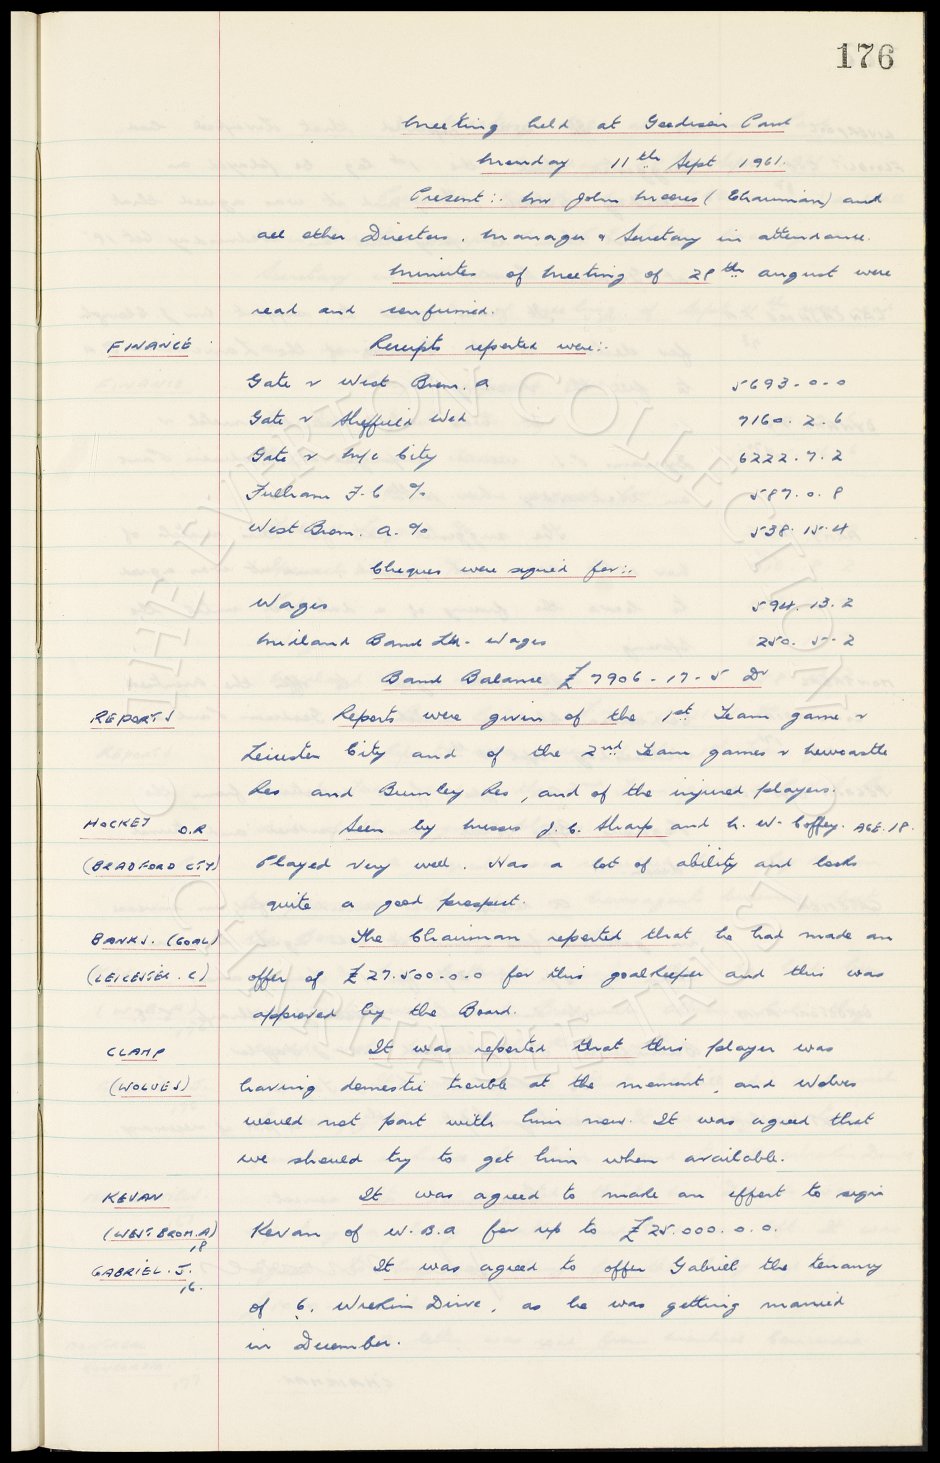 176
Meeting held at Goodison Park
Monday 11th Sept 1961.
Present:- Mr John Moores (Chairman) and
all other Directors. Manager & Secretary in attendance.
Minutes of Meeting of 28th August were
read and confirmed.
FINANCE Receipts reported were:-
Gate v West Brom. A 5693-0-0
Gate v Sheffield Wed 7160.2.6
Gate v M/c City 6222.7.2
Fulham F.C % 587.0.8
West Brom. A. % 538.15.4
Cheques were signed for:-
Wages 594.13.2
Midland Bank Ltd - Wages 250.5-2
Bank Balance £7906-17-5 Dr
REPORTS Reports were given of the 1st Team game v
Leicester City and of the 2nd Team games v Newcastle
Res and Burnley Res, and of the injured players.
HOCKEY O.R Seen by Messrs J. C. Sharp and h. W. Coffey. AGE.18.
(BRADFORD CTY) Played very well. Has a lot of ability and looks
quite a good prospect.
BANKS. (GOAL) The Chairman reported that he had made an
(LEICESTER. C) offer of £27.500-0-0 for this goalkeeper and this was
approved by the Board.
CLAMP It was reported that this player was
(WOLVES) having domestic trouble at the moment, and Wolves
would not part with him now. It was agreed that
we should try to get him when available.
KEVAN It was agreed to make an effort to sign
(WEST BROM.A) Kevan of W.B.A for up to £25.000.0.0.
18
GABRIEL. J. It was agreed to offer Gabriel the tenancy
16.
of 6, Wrekin Drive, as he was getting married
in December.
THE EVERTON COLLECTION